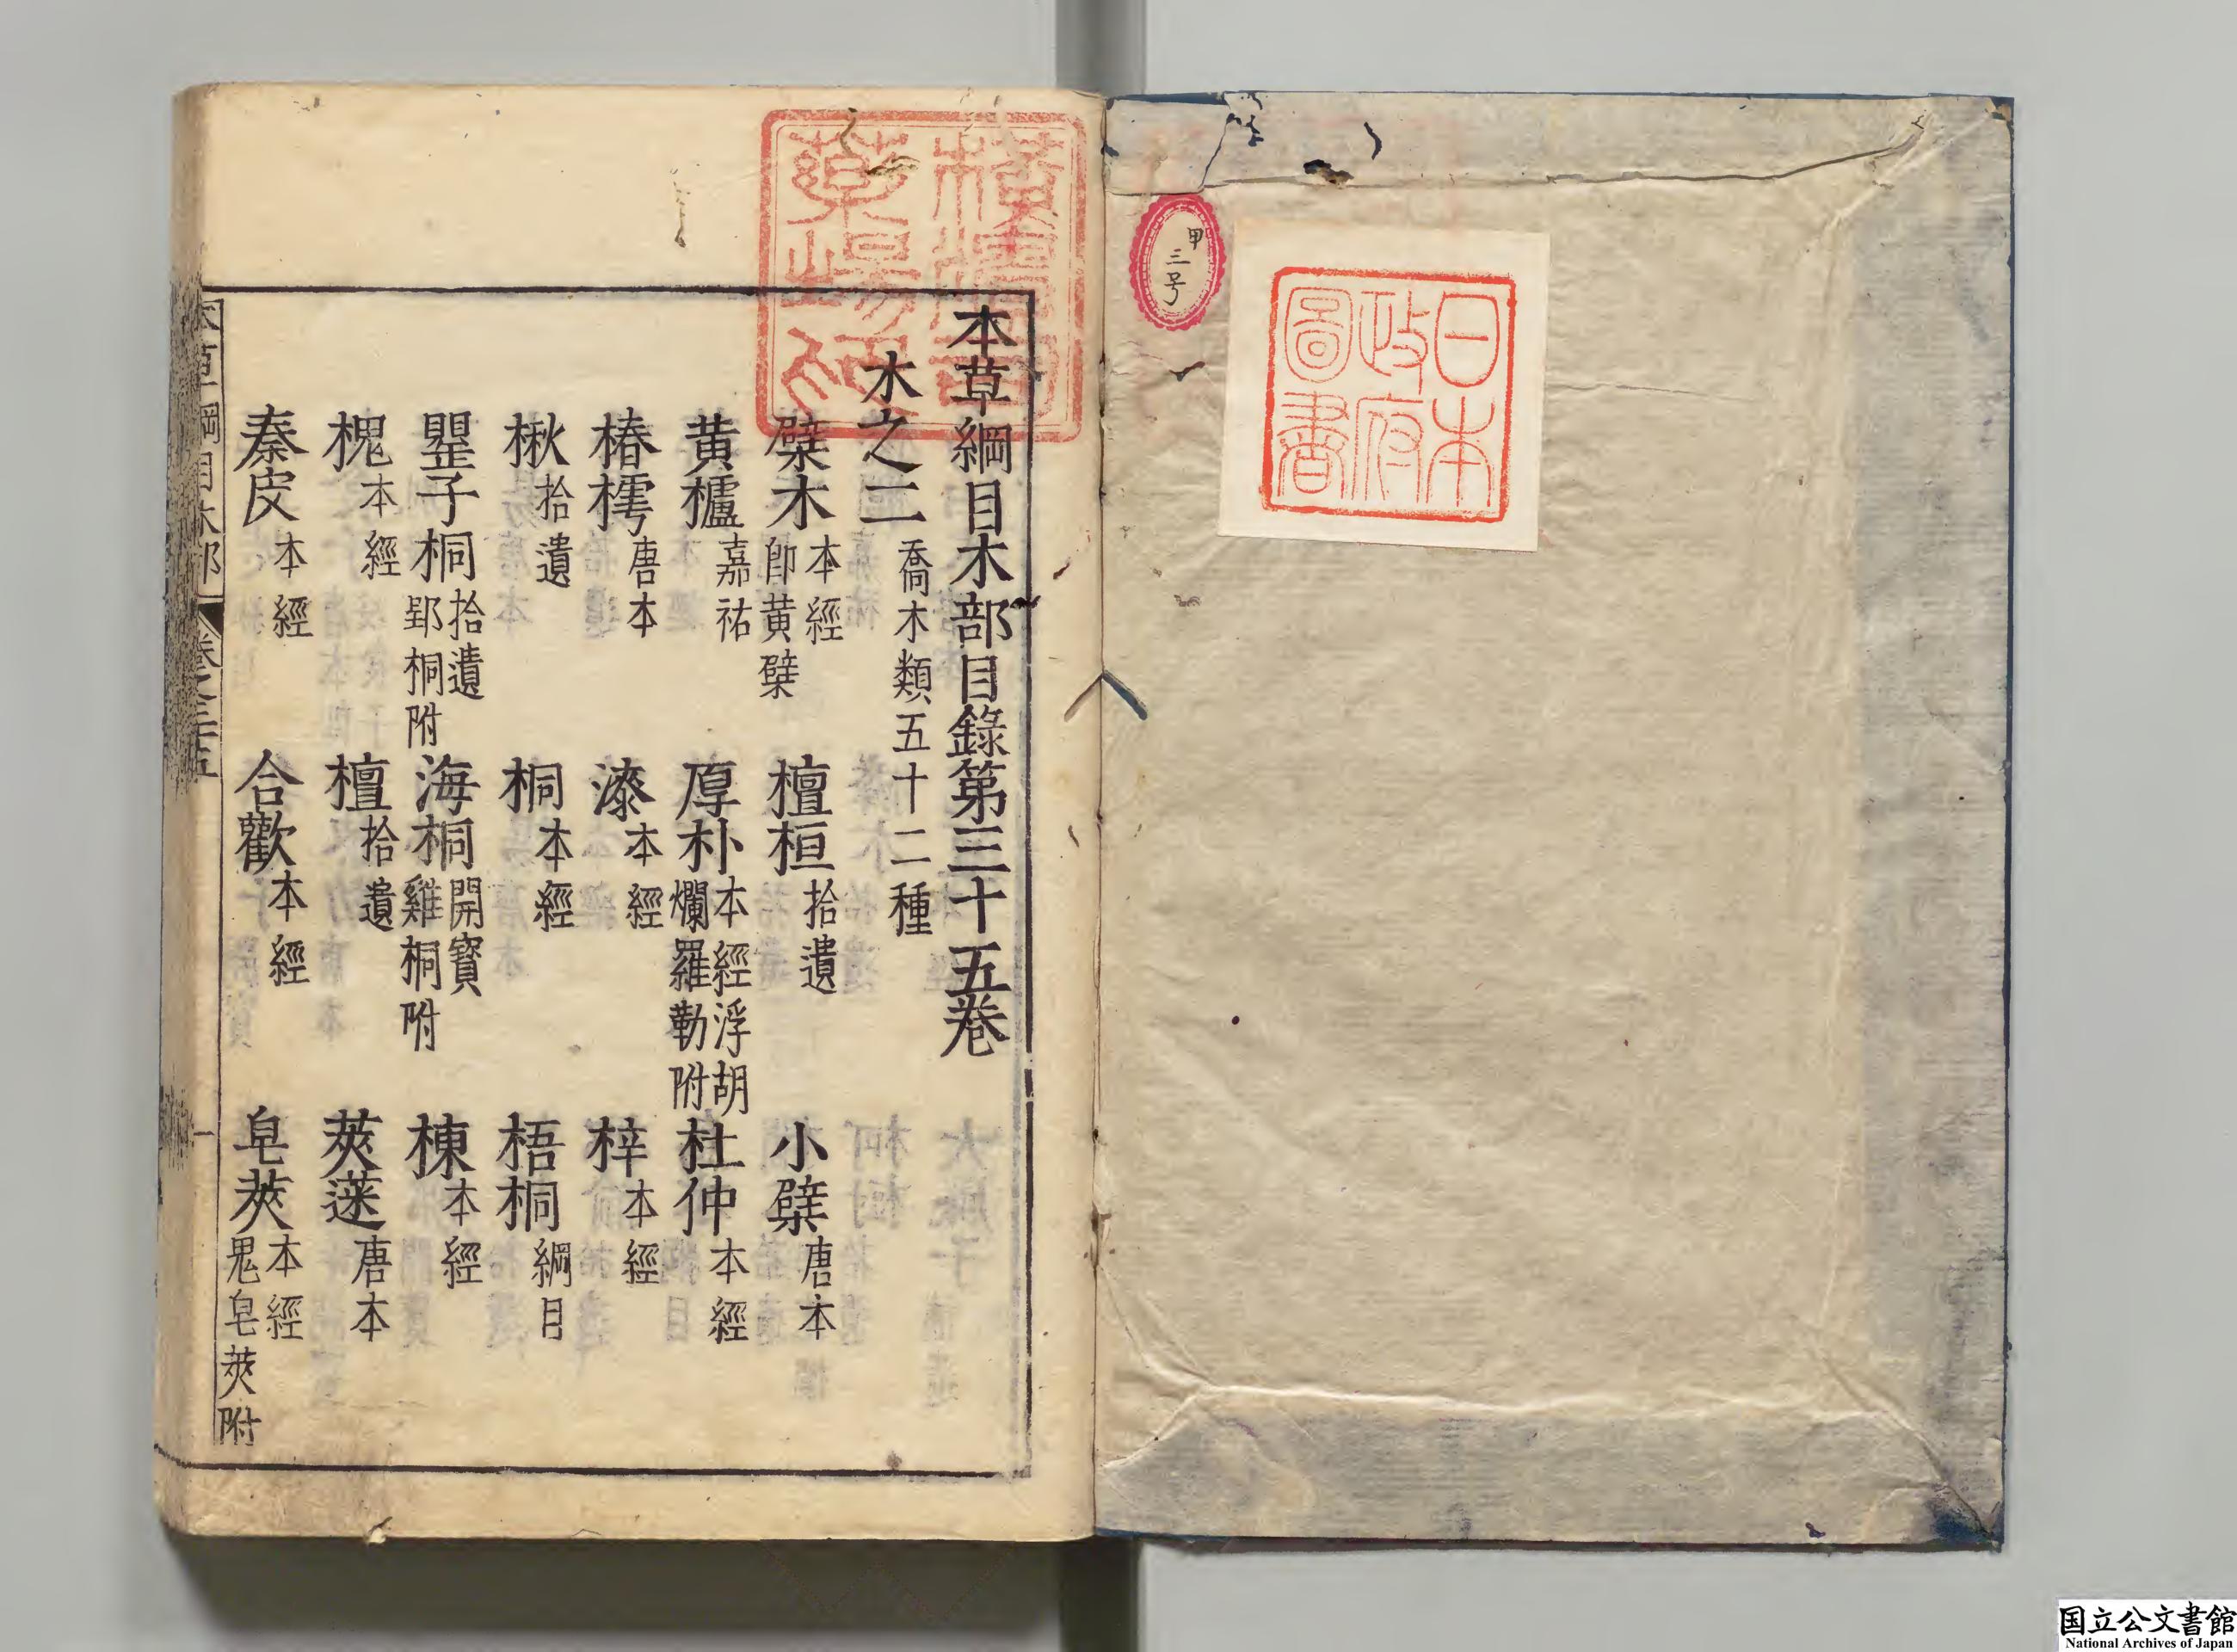 甲
三
号
日本
政府
圖書
本草綱目木部目錄第三十五卷
木之二 喬木類五十二種
檗木 本經 卽黃檗 檀桓 拾遺 小檗 唐本
黃櫨 嘉祐 厚朴 本經 浮胡爛羅勒附 杜仲 本經
椿樗 唐本 漆 本經 梓 本經
楸 拾遺 桐 本經 梧桐 綱目
罌子桐 拾遺 郢桐附 海桐 開寶 雞桐附 楝 本經
槐 本經 檀 拾遺 莢蒾 唐本
秦皮 本經 合歡 本經 皂莢 本經 鬼皂莢附
本草綱目木部 卷之三十五 一
国立公文書館
National Archives of Japan